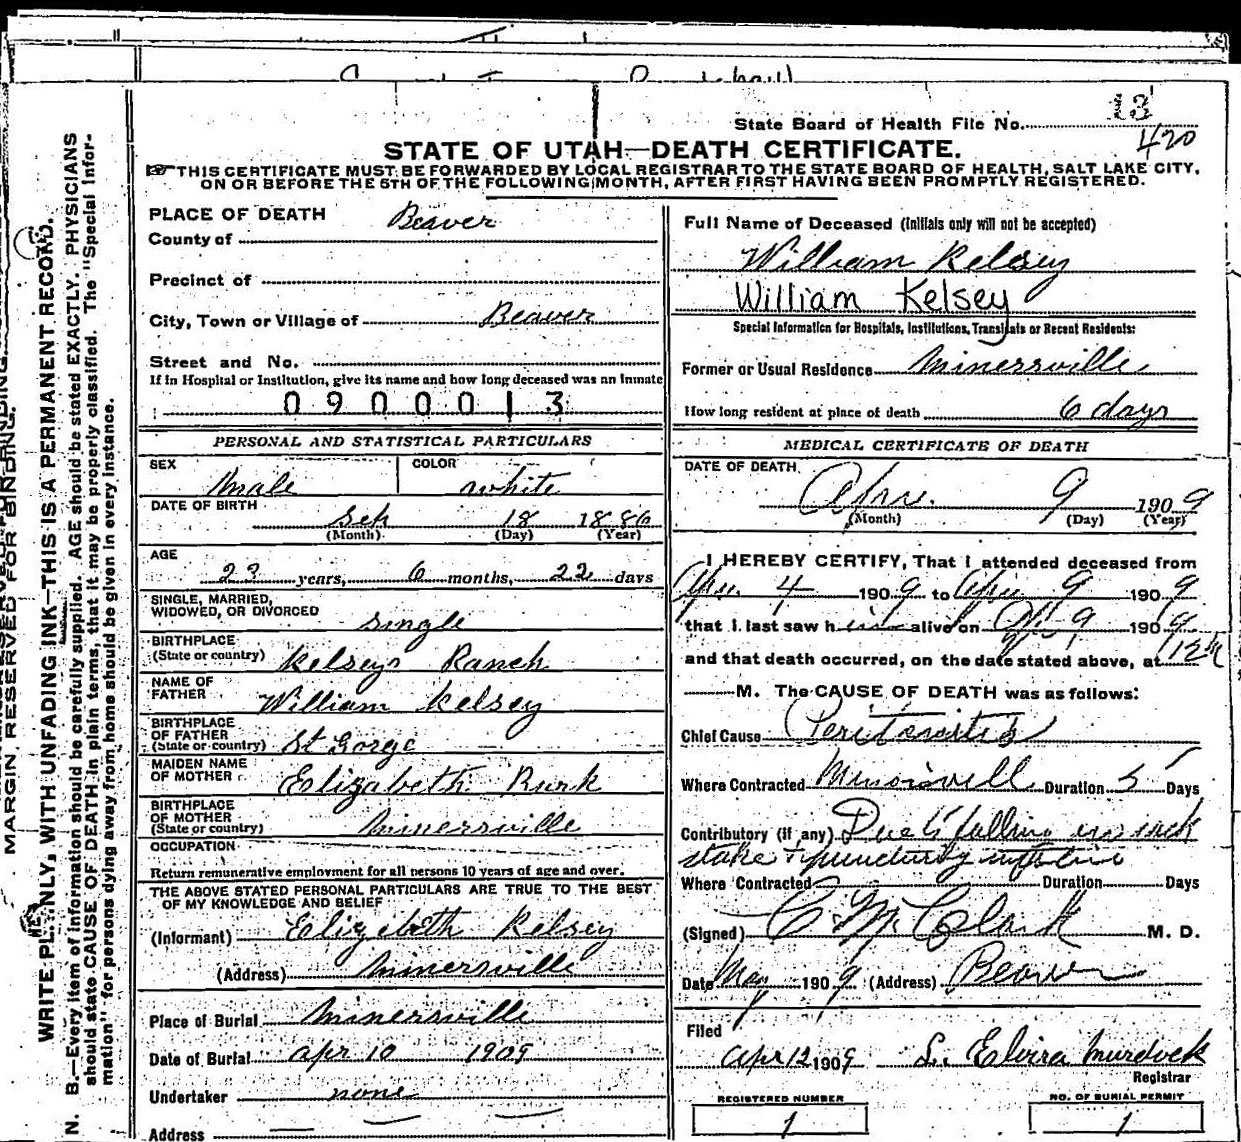 State Board of Health File No. 13
420
STATE OF UTAH—DEATH CERTIFICATE.
THIS CERTIFICATE MUST BE FORWARDED BY LOCAL REGISTRAR TO THE STATE BOARD OF HEALTH, SALT LAKE CITY,
ON OR BEFORE THE 5TH OF THE FOLLOWING MONTH, AFTER FIRST HAVING BEEN PROMPTLY REGISTERED.
MARGIN RESERVED FOR BINDING.
WRITE PLAINLY, WITH UNFADING INK—THIS IS A PERMANENT RECORD.
N. B.—Every item of information should be carefully supplied. AGE should be stated EXACTLY. PHYSICIANS
should state CAUSE OF DEATH in plain terms, that it may be properly classified. The "Special Infor-
mation" for persons dying away from home should be given in every instance.
PLACE OF DEATH
County of Beaver
Precinct of
City, Town or Village of Beaver
Street and No.
If in Hospital or Institution, give its name and how long deceased was an inmate
0 9 0 0 0 1 3
PERSONAL AND STATISTICAL PARTICULARS
SEX Male COLOR white
DATE OF BIRTH
Seh 18 1886
(Month) (Day) (Year)
AGE
22 years, 6 months, 22 days
SINGLE, MARRIED,
WIDOWED, OR DIVORCED single
BIRTHPLACE
(State or country) Kelseys Ranch
NAME OF
FATHER William Kelsey
BIRTHPLACE
OF FATHER
(State or country) St Gorge
MAIDEN NAME
OF MOTHER Elizabeth Rurk
BIRTHPLACE
OF MOTHER
(State or country) Minersville
OCCUPATION
Return remunerative employment for all persons 10 years of age and over.
THE ABOVE STATED PERSONAL PARTICULARS ARE TRUE TO THE BEST
OF MY KNOWLEDGE AND BELIEF
(Informant) Elizebeth Kelsey
(Address) Minersville
Place of Burial Minersville
Date of Burial apr 10 1909
Undertaker none
Address
Full Name of Deceased (Initials only will not be accepted)
William Kelsey
William Kelsey
Special Information for Hospitals, Institutions, Transients or Recent Residents:
Former or Usual Residence Minersville
How long resident at place of death 6 days
MEDICAL CERTIFICATE OF DEATH
DATE OF DEATH
Apr. 9 1909
(Month) (Day) (Year)
I HEREBY CERTIFY, That I attended deceased from
Apr. 4 1909 to Apr 9 1909
that I last saw him alive on Ap 9 1909
and that death occurred, on the date stated above, at 12 M
M. The CAUSE OF DEATH was as follows:
Chief Cause Peritonitis
Where Contracted Minersvill Duration 5 Days
Contributory (if any) Due to falling on rack
stake & puncturing intestine
Where Contracted Duration Days
(Signed) C M Clark M. D.
Date May 1909 (Address) Beaver
Filed
apr 12 1909 L. Elvira Murdock
Registrar
REGISTERED NUMBER
1
NO. OF BURIAL PERMIT
1